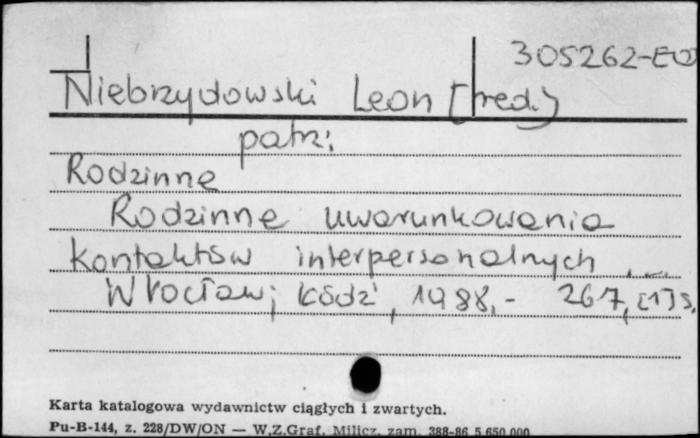 305262-EO
Niebrzydowski Leon [red.]
patrz:
Rodzinne
Rodzinne uwarunkowania
kontaktów interpersonalnych ...
Wrocław; Łódź, 1988.- 267, [1] s.
Karta katalogowa wydawnictw ciągłych i zwartych.
Pu-B-144, z. 228/DW/ON — W.Z.Graf. Milicz, zam. 388-86 5.650.000